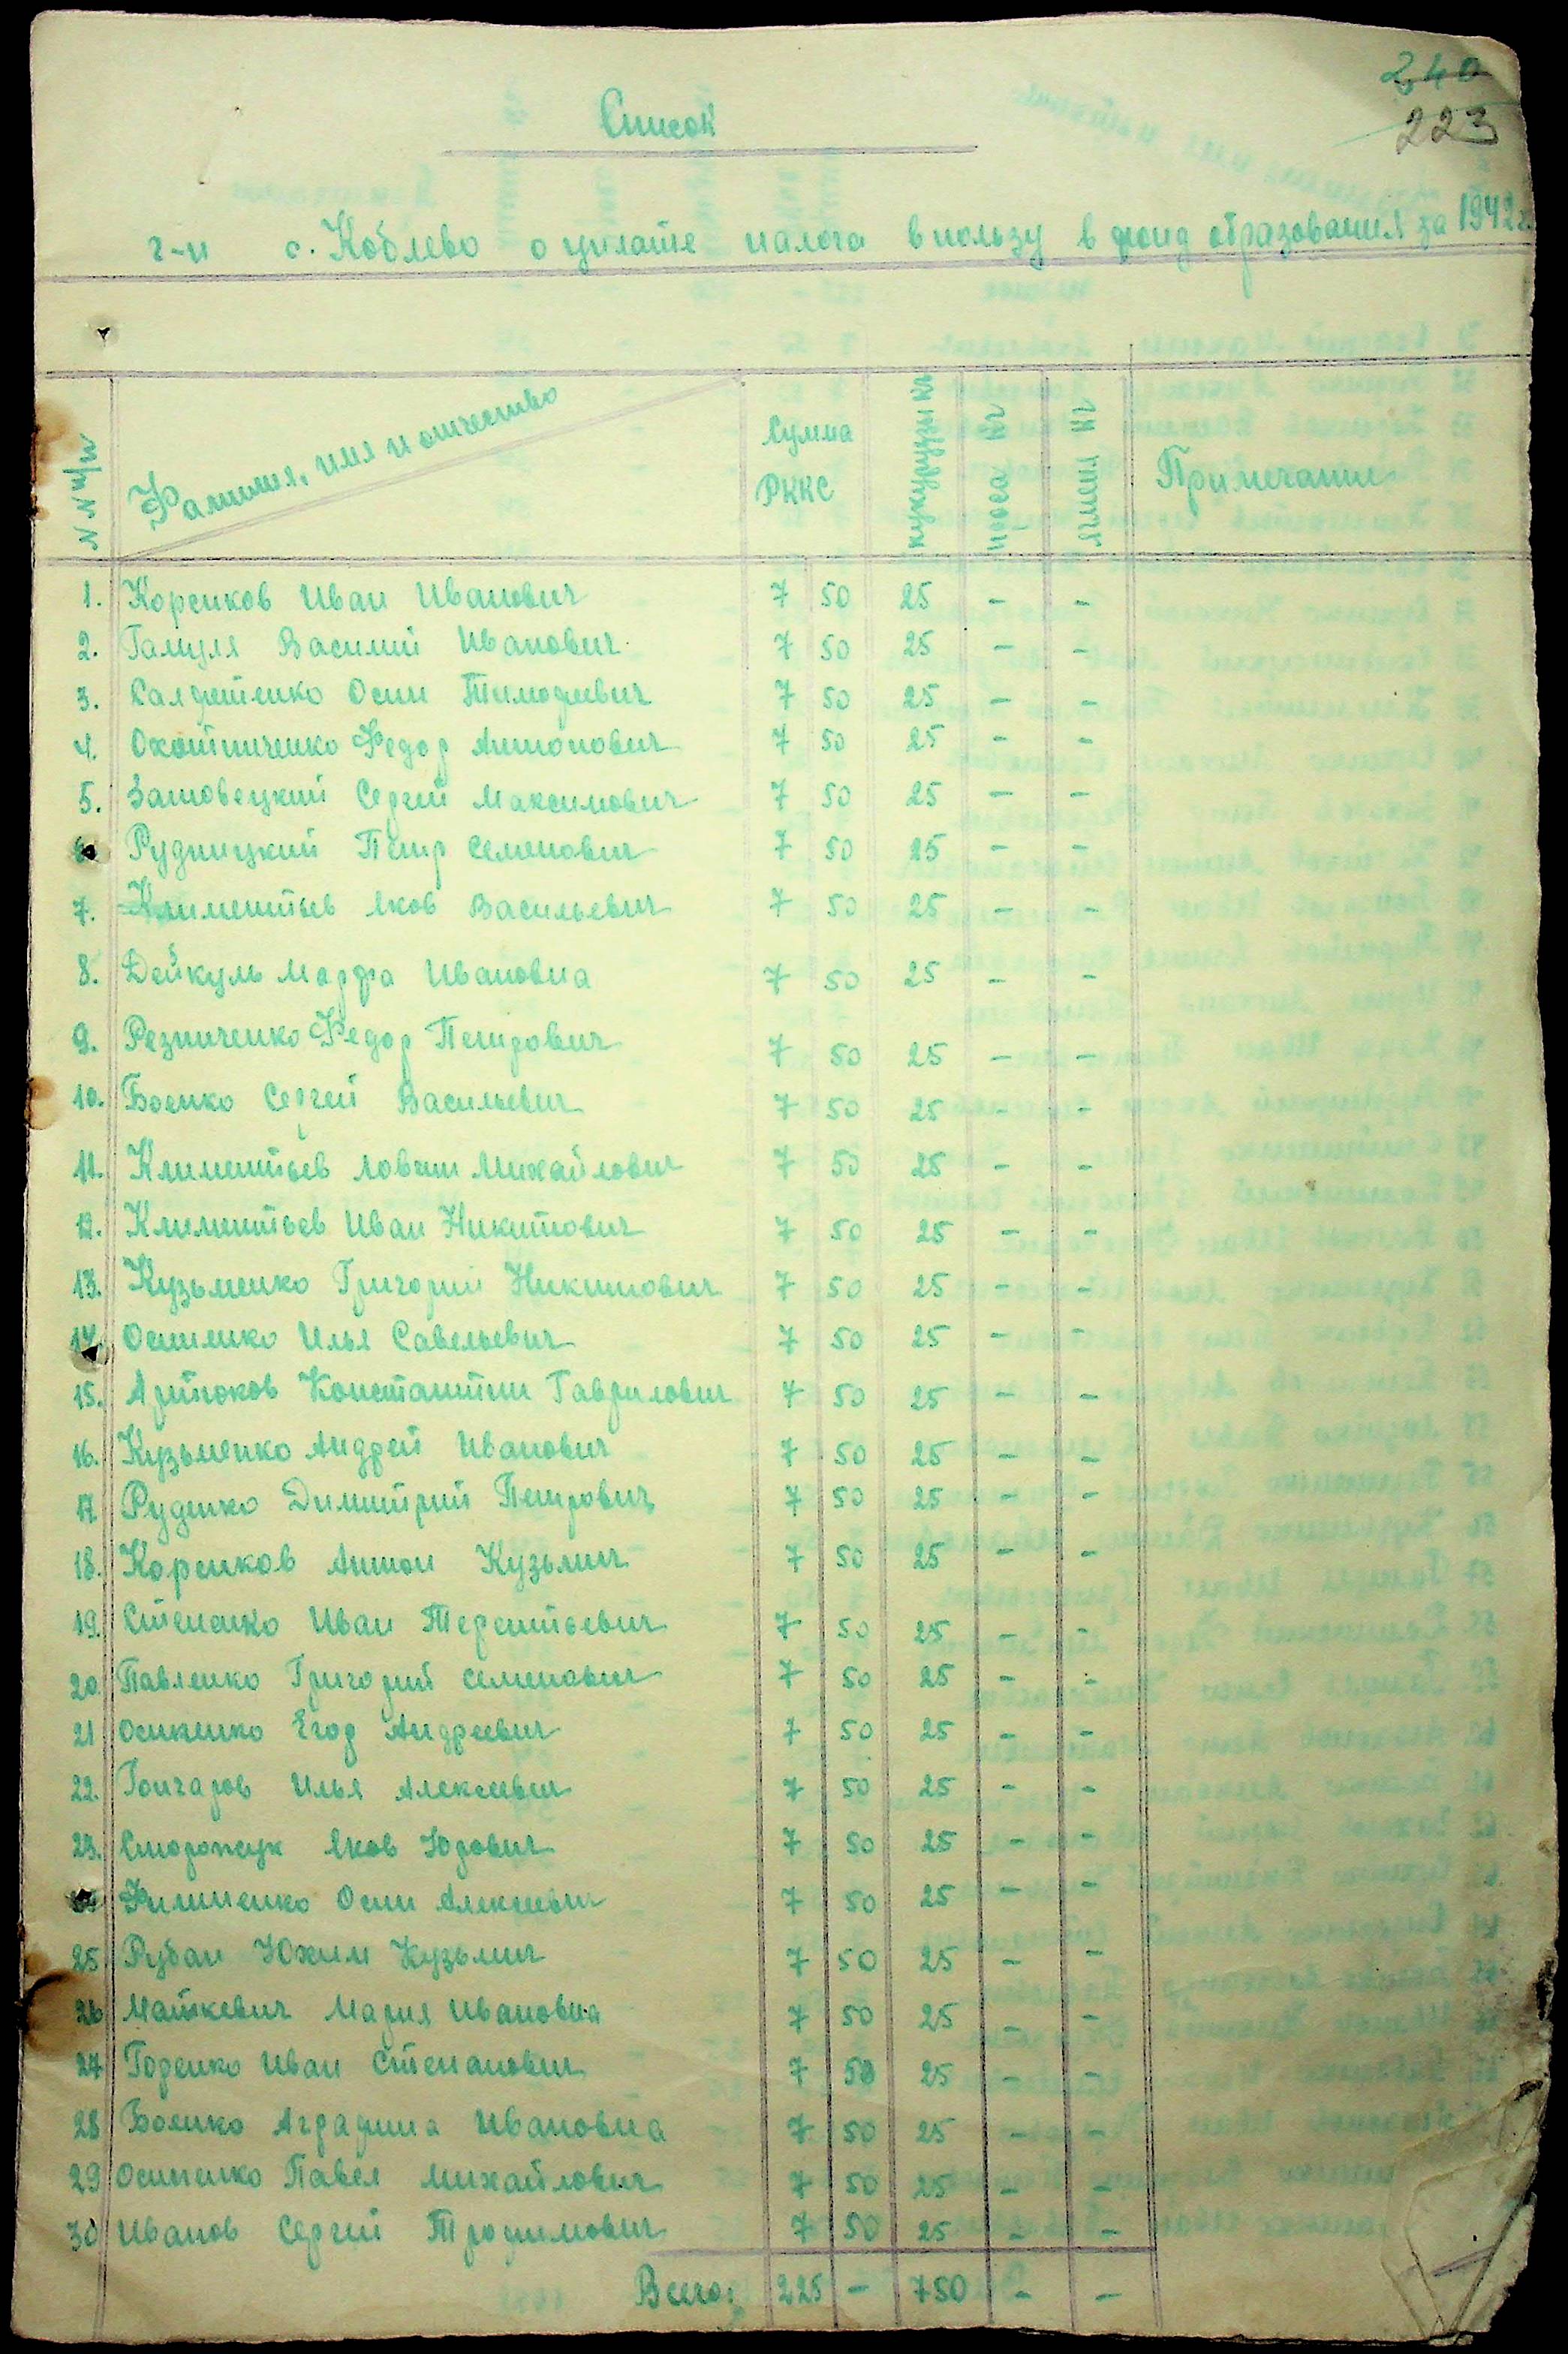 240
223
Список
г-н с. Коблево о уплате налога в пользу в фонд образования за 1942 г.
N N п/п Фамилия, имя и отчество Сумма РККС кукурузы кг проса кг ячменя кг Примечание
1. Коренков Иван Иванович 7 50 25 - -
2. Гамуля Василий Иванович 7 50 25 - -
3. Осип Тимофеевич 7 50 25 - -
4. Охотниченко Федор Антонович 7 50 25 - -
5. Затовецкий Сергей Максимович 7 50 25 - -
6. Рудницкий Петр Семенович 7 50 25 - -
7. Климентьев Яков Васильевич 7 50 25 - -
8. Дейкуль Марфа Ивановна 7 50 25 - -
9. Резниченко Федор Петрович 7 50 25 - -
10. Боенко Сергей Васильевич 7 50 25 - -
11. Климентьев Михайлович 7 50 25 - -
12. Климентьев Иван Никитович 7 50 25 - -
13. Кузьменко Григорий Никитович 7 50 25 - -
14. Осипенко Илья Савельевич 7 50 25 - -
15. Артюков Константин Гаврилович 7 50 25 - -
16. Кузьменко Андрей Иванович 7 50 25 - -
17 Руденко Димитрий Петрович 7 50 25 - -
18. Коренков Антон Кузьмич 7 50 25 - -
19. Степенко Иван Терентьевич 7 50 25 - -
20. Павленко Григорий Семенович 7 50 25 - -
21 Осипенко Егор Андреевич 7 50 25 - -
22. Гончаров Илья Алексеевич 7 50 25 - -
23. Сторожук Яков Юрович 7 50 25 - -
Филипенко Осип Алексеевич 7 50 25 - -
25 Рубан Юхим Кузьмич 7 50 25 - -
26 Маткевич Мария Ивановна 7 50 25 - -
27 Горенко Иван Степанович 7 50 25 - -
28 Боенко Ивановна 7 50 25 - -
29 Осипенко Павел Михайлович 7 50 25 - -
30 Иванов Сергей Трофимович 7 50 25 - -
Всего: 225 - 750 - -